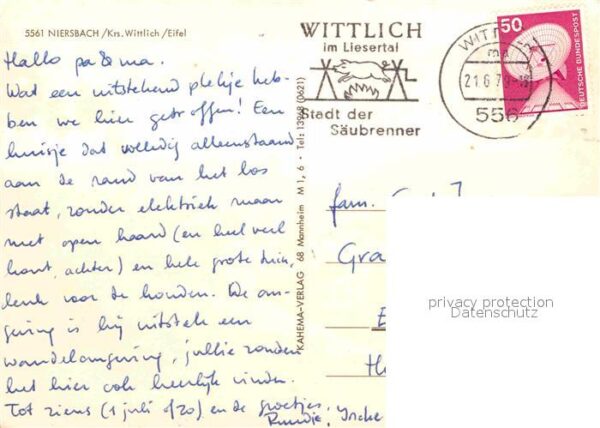 5561 NIERSBACH / Krs. Wittlich / Eifel
Hallo pa & ma.
Wat een uitstekend plekje heb-
ben we hier getroffen! Een
huisje dat volledig alleenstaand
aan de rand van het bos
staat, zonder elektriek maar
met open haard (en heel veel
hout, achter) en hele grote tuin,
leuk voor de honden. De om-
geving is bij uitstek een
wandelomgeving, jullie zouden
het hier ook heerlijk vinden.
Tot ziens (1 juli of 20) en de groetjes,
Ruudje, Yncke
KAHEMA-VERLAG 68 Mannheim M 1, 6 • Tel: 13968 (0621)
WITTLICH
im Liesertal
Stadt der
Säubrenner
WITTLICH
21.6.79
556
50
DEUTSCHE BUNDESPOST
fam.
Gra
E
H
privacy protection
Datenschutz